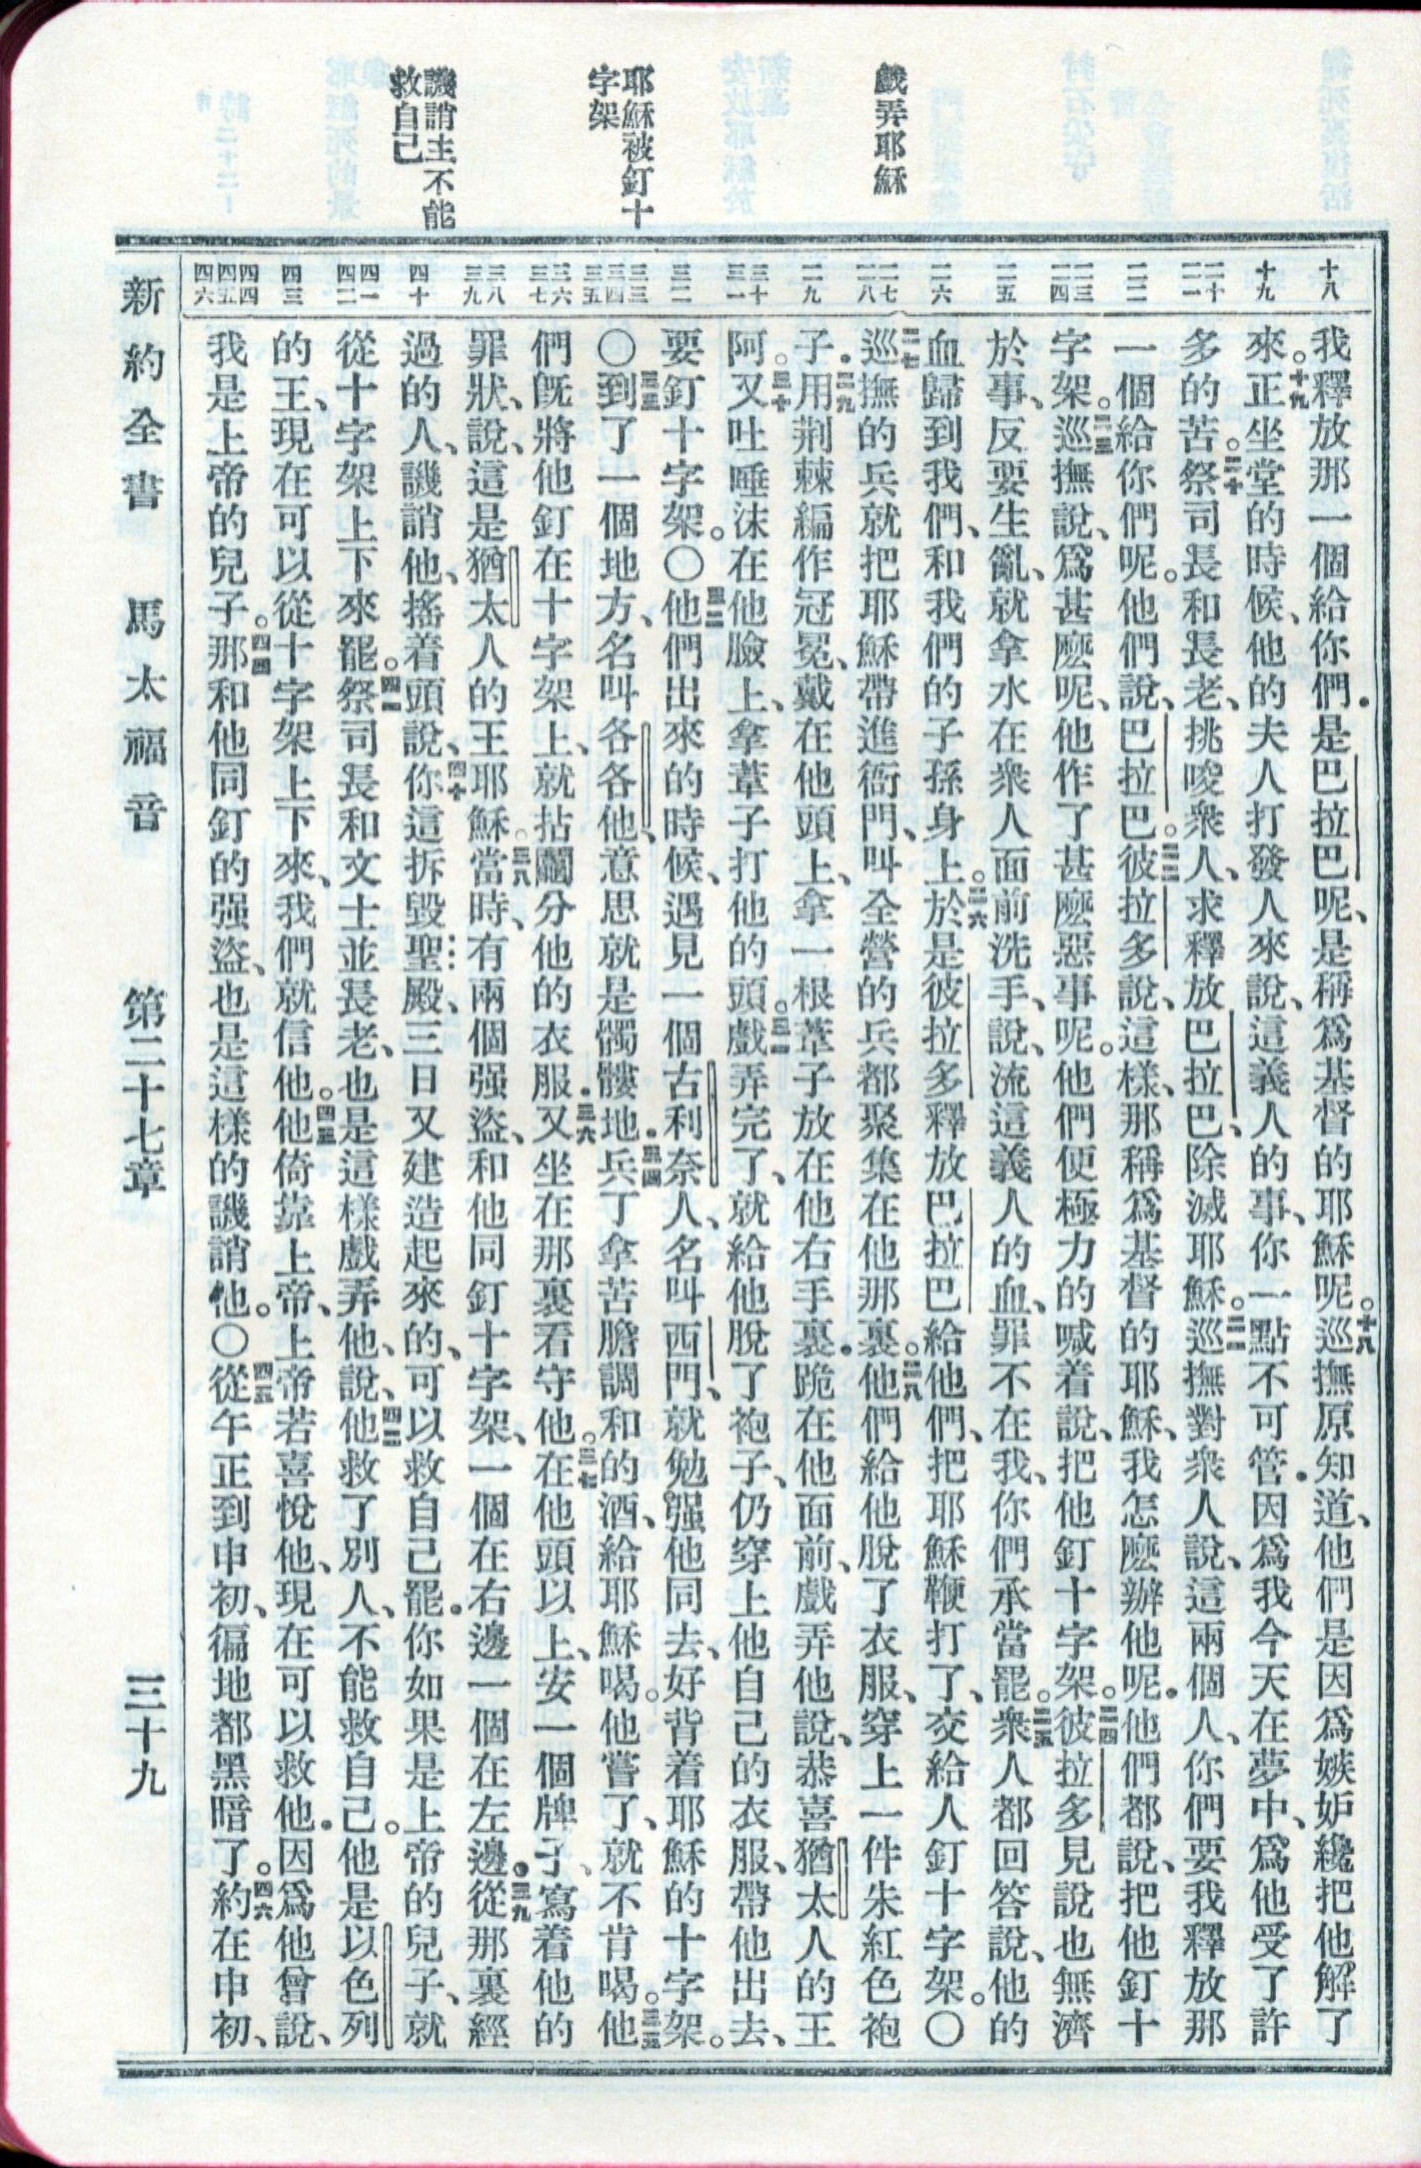 戲弄耶穌
耶穌被釘十
字架
譏誚主不能
救自己
十八
十九
二十
二一
二二
二三
二四
二五
二六
二七
二八
二九
三十
三一
三二
三三
三四
三五
三六
三七
三八
三九
四十
四一
四二
四三
四四
四五
四六
我釋放那一個給你們．是巴拉巴呢、是稱爲基督的耶穌呢。十八巡撫原知道、他們是因爲嫉妒纔把他解了
來。十九正坐堂的時候、他的夫人打發人來說、這義人的事、你一點不可管．因爲我今天在夢中、爲他受了許
多的苦。二十祭司長和長老、挑唆衆人、求釋放巴拉巴、除滅耶穌。二一巡撫對衆人說、這兩個人、你們要我釋放那
一個給你們呢。他們說、巴拉巴。二二彼拉多說、這樣、那稱爲基督的耶穌、我怎麼辦他呢．他們都說、把他釘十
字架。二三巡撫說、爲甚麼呢、他作了甚麼惡事呢。他們便極力的喊着說、把他釘十字架。二四彼拉多見說也無濟
於事、反要生亂、就拿水在衆人面前洗手、說、流這義人的血、罪不在我、你們承當罷。二五衆人都回答說、他的
血歸到我們、和我們的子孫身上。二六於是彼拉多釋放巴拉巴給他們、把耶穌鞭打了、交給人釘十字架。〇
二七巡撫的兵就把耶穌帶進衙門、叫全營的兵都聚集在他那裏。二八他們給他脫了衣服、穿上一件朱紅色袍
子．二九用荆棘編作冠冕、戴在他頭上、拿一根葦子放在他右手裏．跪在他面前、戲弄他說、恭喜猶太人的王
阿。三十又吐唾沫在他臉上、拿葦子打他的頭。三一戲弄完了、就給他脫了袍子、仍穿上他自己的衣服、帶他出去、
要釘十字架。〇三二他們出來的時候、遇見一個古利奈人、名叫西門、就勉强他同去、好背着耶穌的十字架。
〇三三到了一個地方、名叫各各他、意思就是髑髏地．三四兵丁拿苦膽調和的酒、給耶穌喝。他嘗了、就不肯喝。三五他
們旣將他釘在十字架上、就拈鬮分他的衣服．三六又坐在那裏看守他。三七在他頭以上、安一個牌子、寫着他的
罪狀、說、這是猶太人的王耶穌。三八當時、有兩個强盜、和他同釘十字架、一個在右邊一個在左邊．三九從那裏經
過的人、譏誚他、搖着頭說、四十你這拆毀聖殿、三日又建造起來的、可以救自己罷．你如果是上帝的兒子、就
從十字架上下來罷。四一祭司長和文士並長老、也是這樣戲弄他、說、四二他救了別人、不能救自己。他是以色列
的王、現在可以從十字架上下來、我們就信他。四三他倚靠上帝、上帝若喜悅他、現在可以救他．因爲他曾說、
我是上帝的兒子。四四那和他同釘的强盜、也是這樣的譏誚他。〇四五從午正到申初、徧地都黑暗了。四六約在申初、
新約全書 馬太福音 第二十七章 三十九